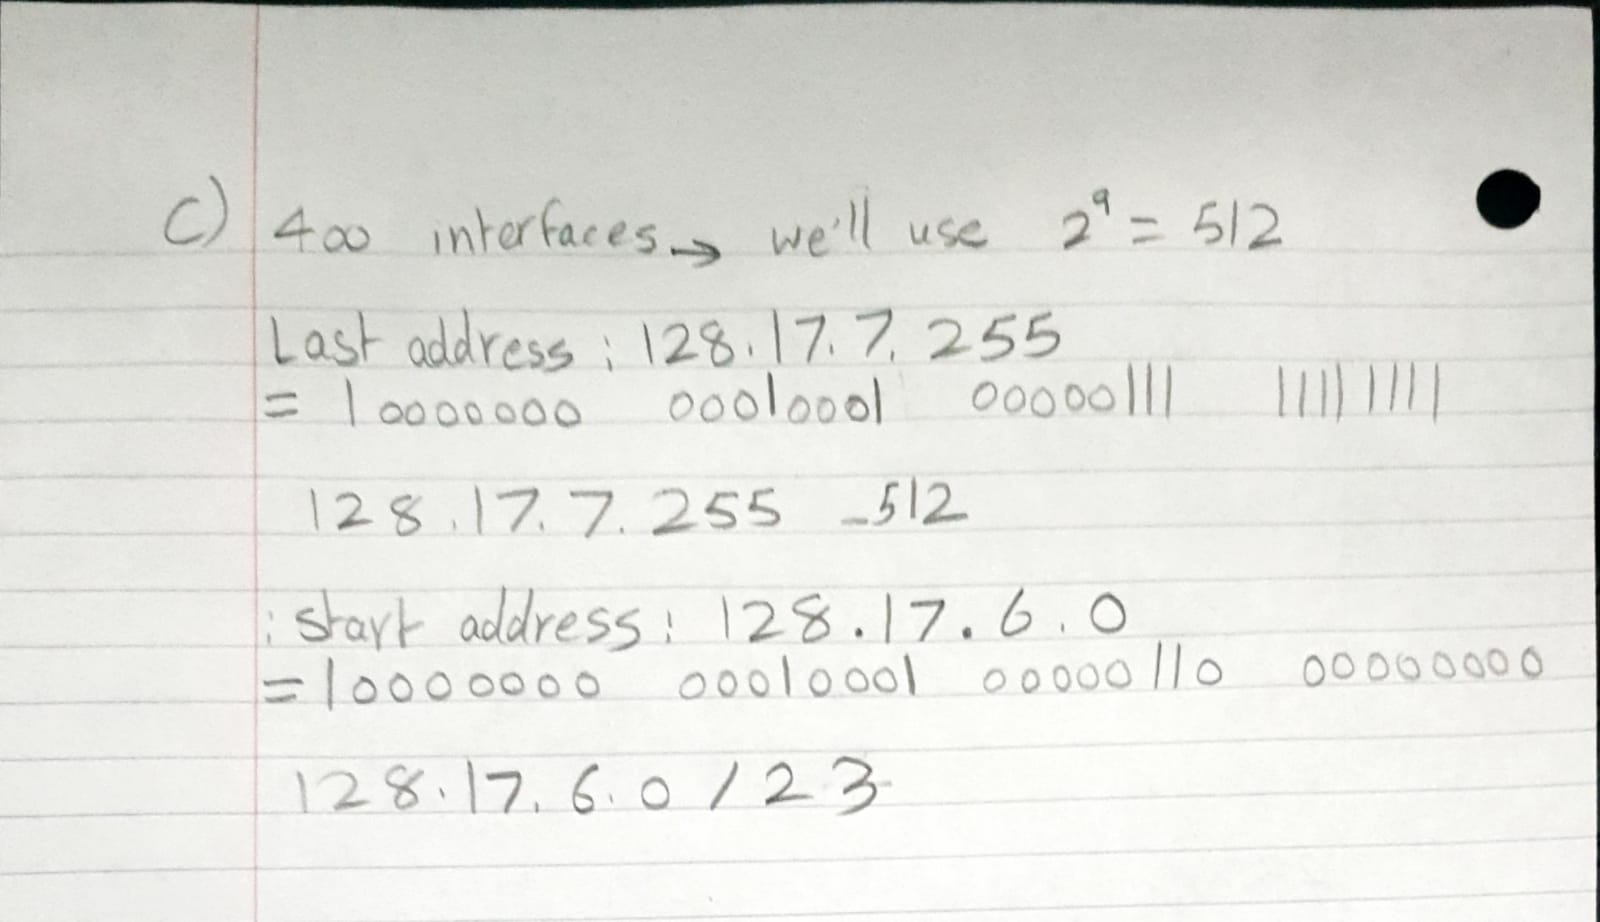 c) 400 interfaces → we'll use 2⁹ = 512
Last address : 128.17.7.255
= 10000000 00010001 00000111 11111111
128.17.7.255 -512
: start address : 128.17.6.0
= 10000000 00010001 00000110 00000000
128.17.6.0 / 23